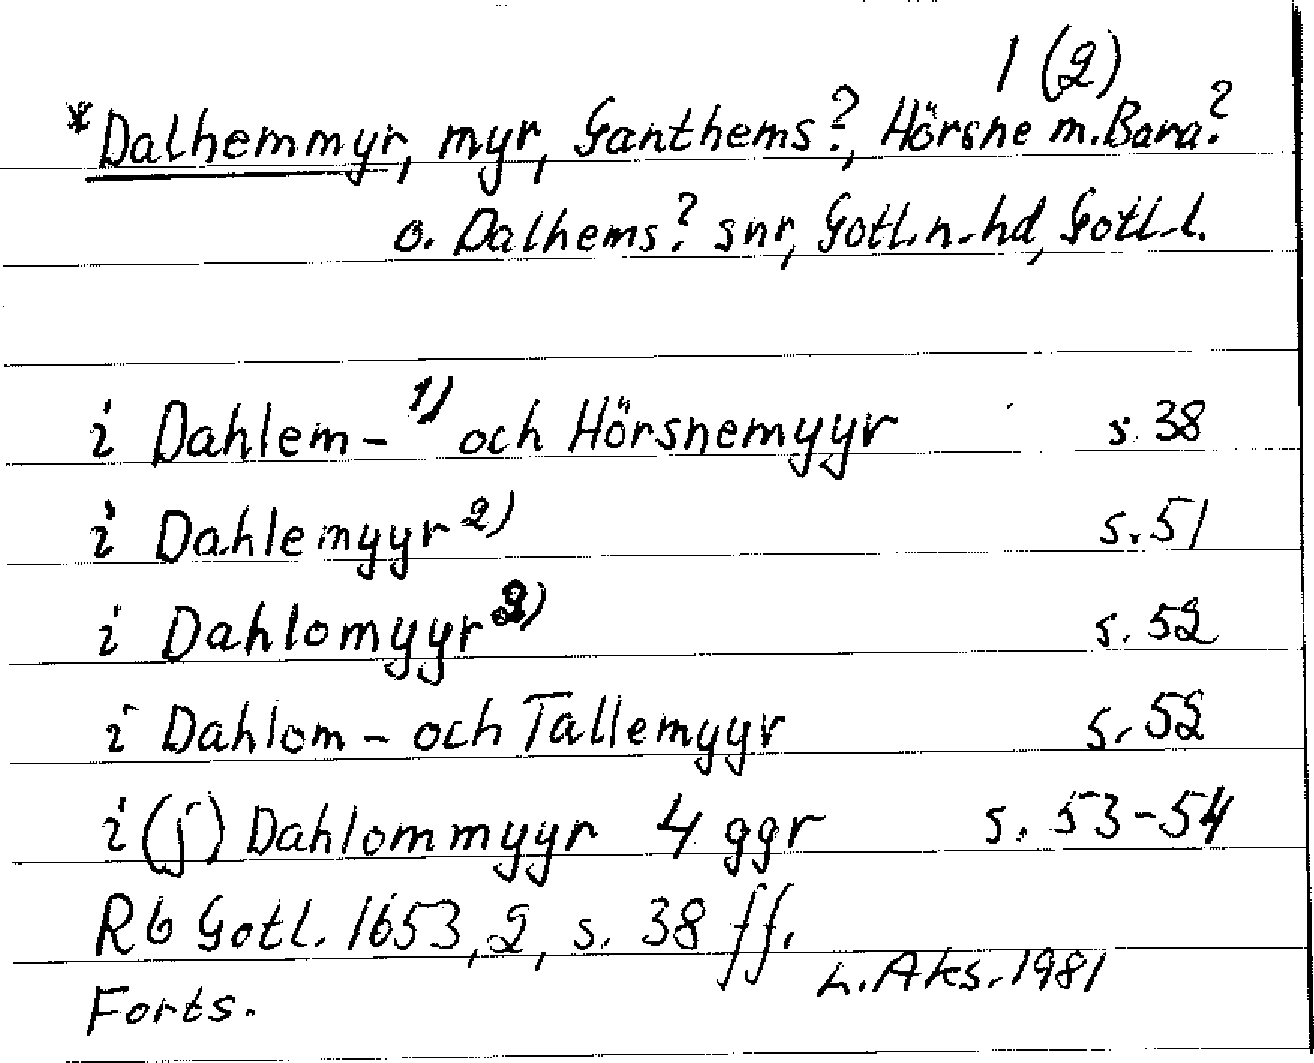 1 (2)
*Dalhemmyr, myr, Ganthems?, Hörsne m. Bara?
o. Dalhems? snr, Gotl. n. hd, Gotl. l.
i Dahlem- 1) och Hörsnemyyr s. 38
i Dahlemyyr 2) s. 51
i Dahlomyyr 2) s. 52
i Dahlom- och Tallemyyr s. 52
i (j) Dahlommyyr 4 ggr s. 53-54
Rb Gotl. 1653, 2, s. 38 ff.
L. Aks. 1981
Forts.